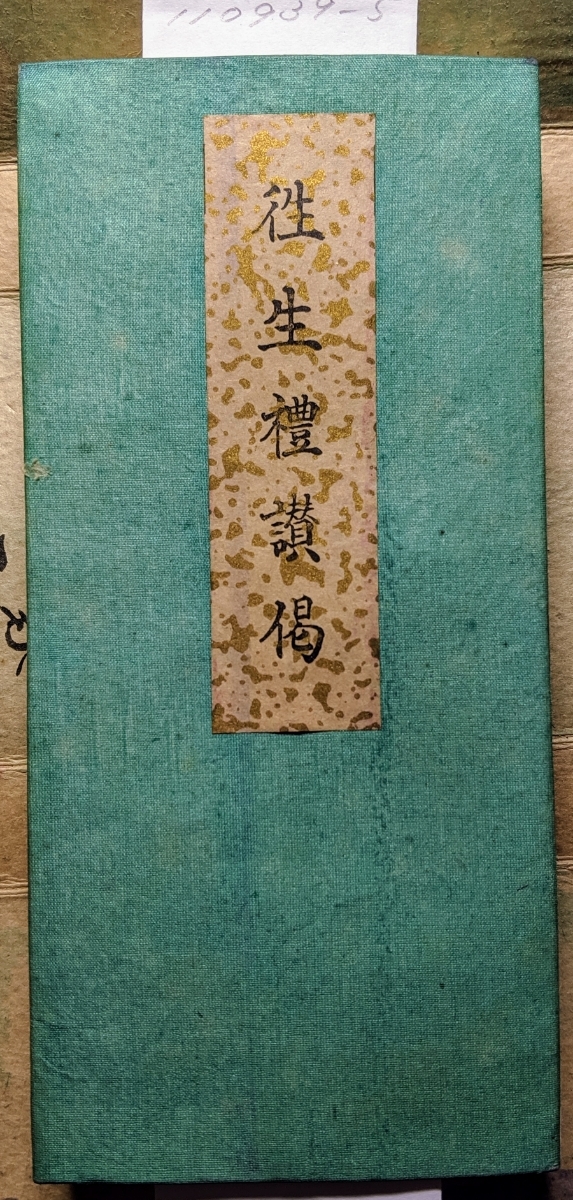 110939-5
徃生禮讃偈